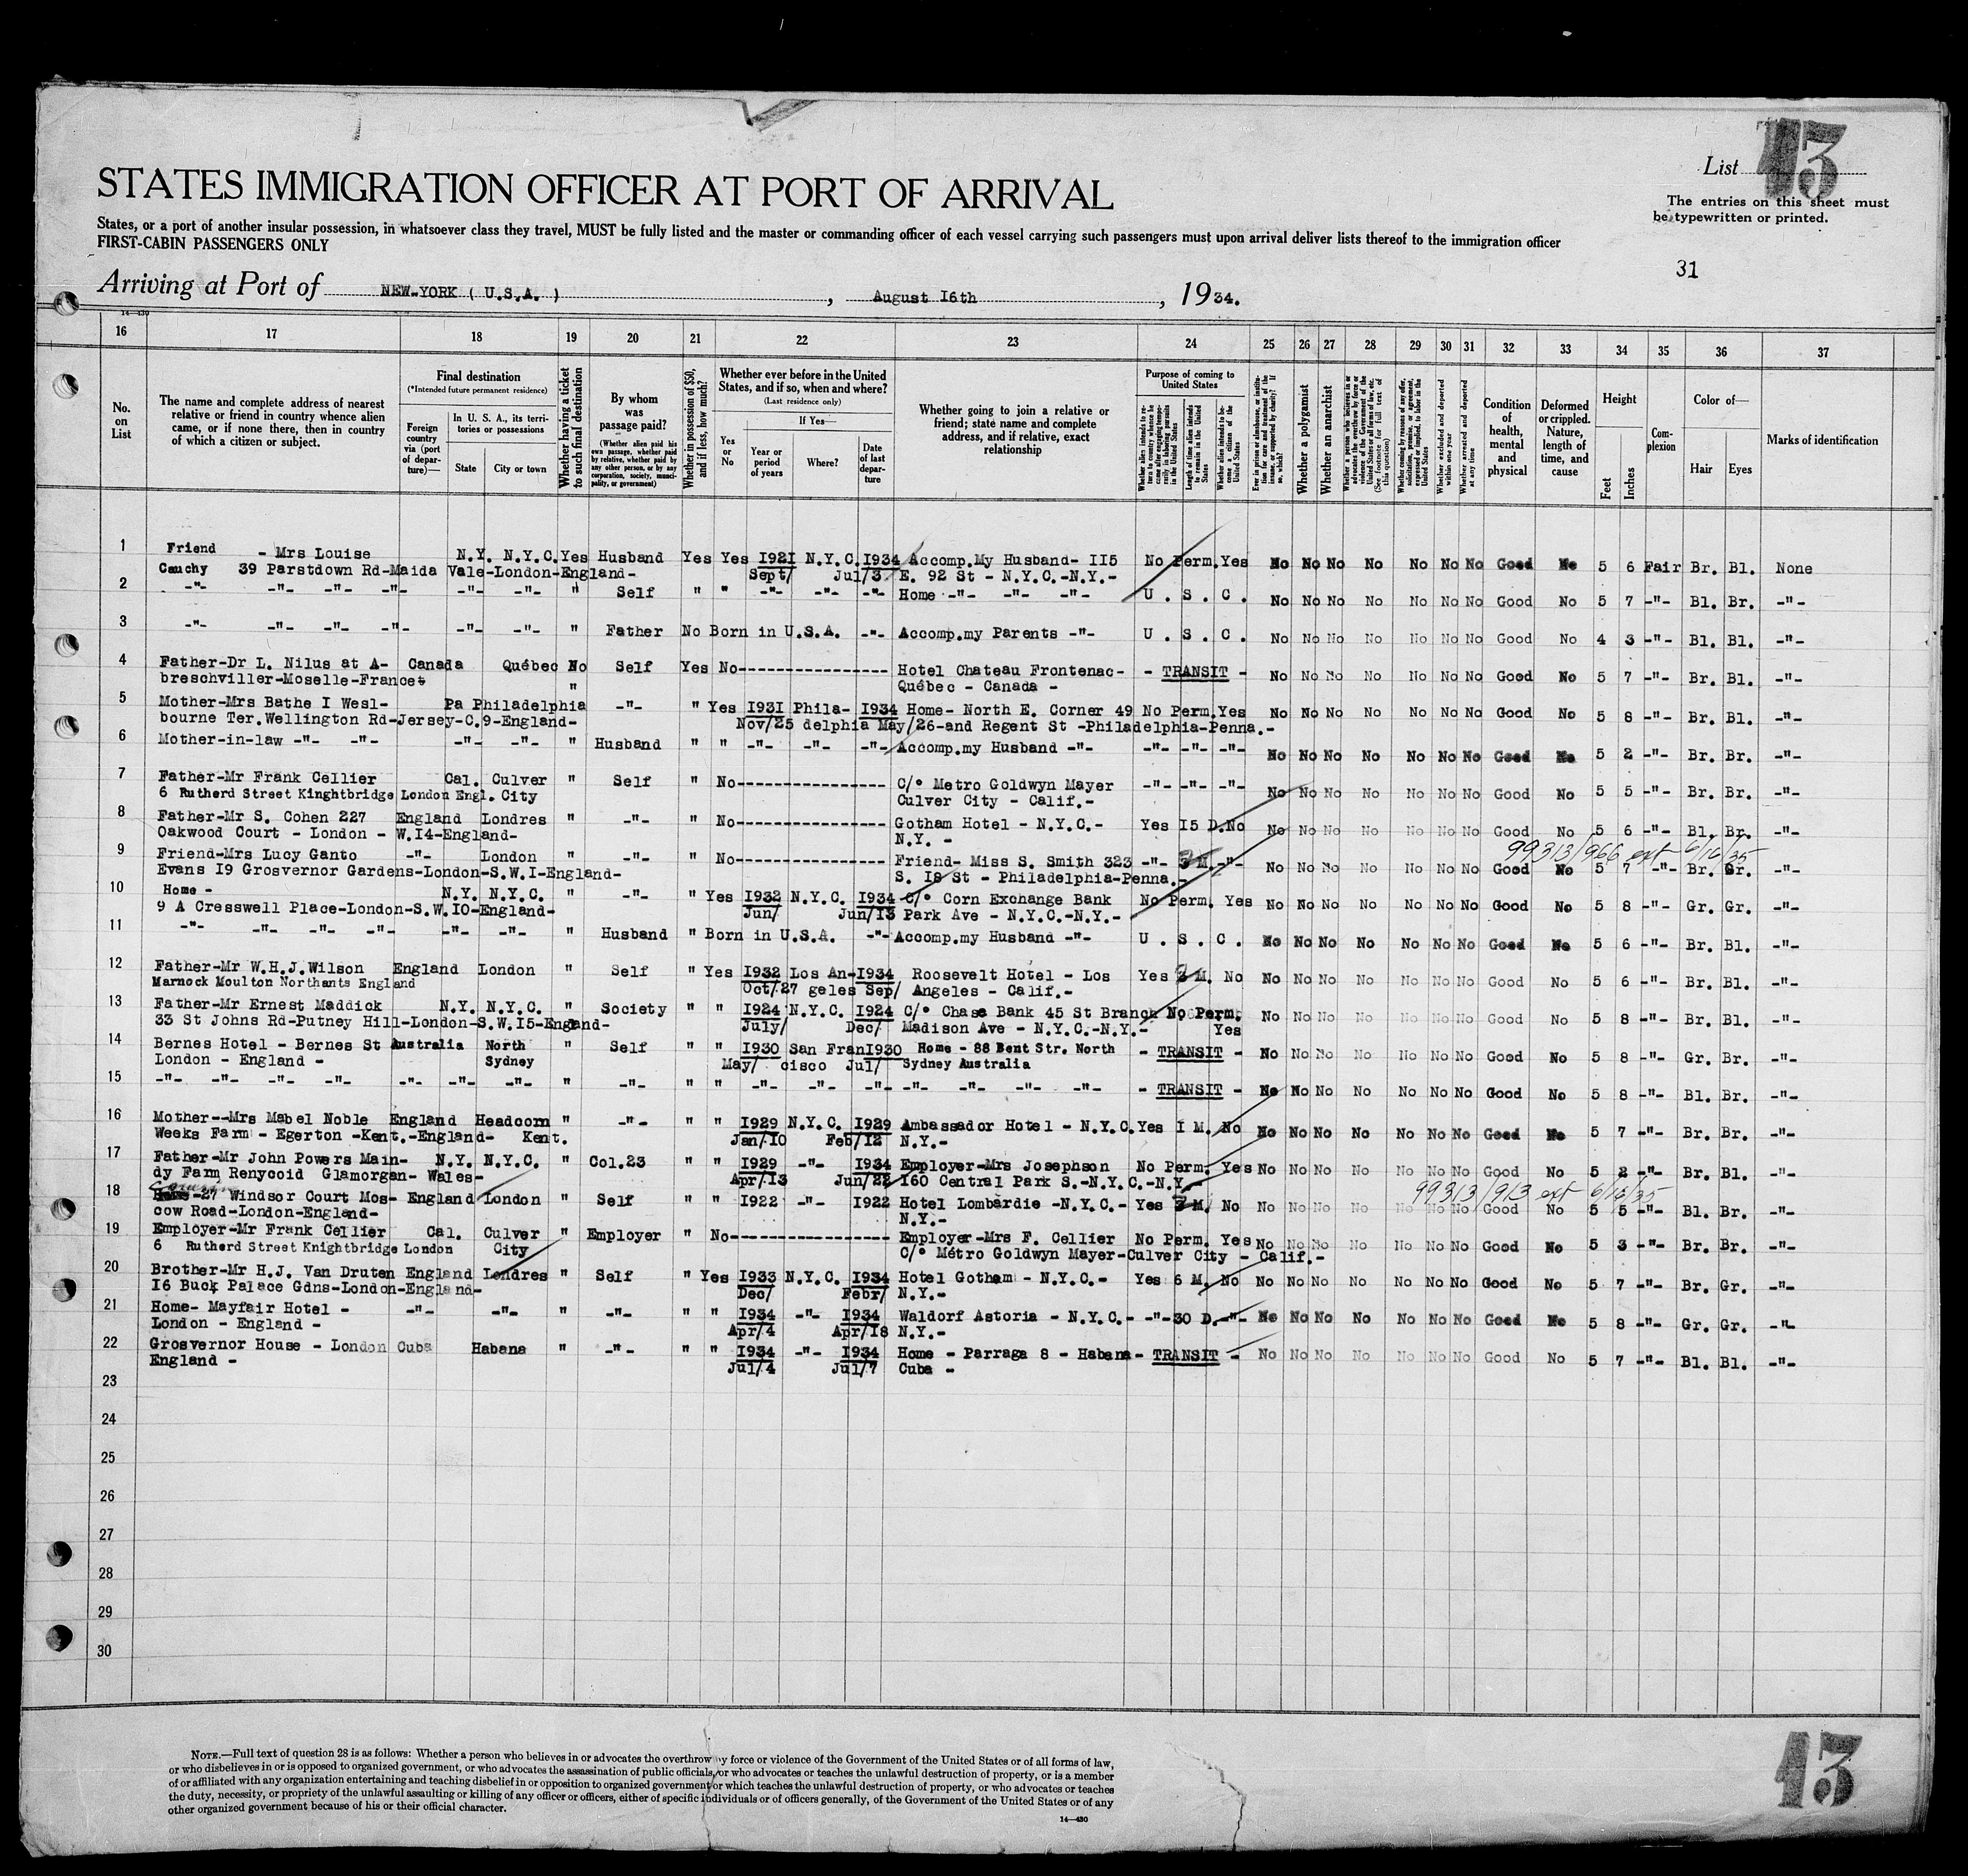 List 13
STATES IMMIGRATION OFFICER AT PORT OF ARRIVAL
The entries on this sheet must
be typewritten or printed.
States, or a port of another insular possession, in whatsoever class they travel, MUST be fully listed and the master or commanding officer of each vessel carrying such passengers must upon arrival deliver lists thereof to the immigration officer
FIRST-CABIN PASSENGERS ONLY
31
Arriving at Port of NEW-YORK ( U.S.A. ) , August I6th , 1934.
14—430
16 17 18 19 20 21 22 23 24 25 26 27 28 29 30 31 32 33 34 35 36 37
No. on List
The name and complete address of nearest relative or friend in country whence alien came, or if none there, then in country of which a citizen or subject.
Final destination
(*Intended future permanent residence)
Foreign country via (port of departure)—
In U. S. A., its territories or possessions
State
City or town
Whether having a ticket to such final destination
By whom was passage paid?
(Whether alien paid his own passage, whether paid by relative, whether paid by any other person, or by any corporation, society, municipality, or government)
Whether in possession of $50, and if less, how much?
Whether ever before in the United States, and if so, when and where?
(Last residence only)
Yes or No
If Yes—
Year or period of years
Where?
Date of last departure
Whether going to join a relative or friend; state name and complete address, and if relative, exact relationship
Purpose of coming to United States
Whether alien intends to return to country whence he came after engaging temporarily in laboring pursuits in the United States
Length of time alien intends to remain in the United States
Whether alien intends to become a citizen of the United States
Ever in prison or almshouse, or institution for care and treatment of the insane, or supported by charity? If so, which?
Whether a polygamist
Whether an anarchist
Whether a person who believes in or advocates the overthrow by force or violence of the Government of the United States or all forms of law, etc. (See footnote for full text of this question)
Whether coming by reason of any offer, solicitation, promise, or agreement, expressed or implied, to labor in the United States
Whether excluded and deported within one year
Whether arrested and deported at any time
Condition of health, mental and physical
Deformed or crippled. Nature, length of time, and cause
Height
Feet
Inches
Complexion
Color of—
Hair
Eyes
Marks of identification
1 Friend - Mrs Louise N.Y. N.Y.C. Yes Husband Yes Yes I92I N.Y.C. I934 Accomp.My Husband- II5 No Perm. Yes No No No No No No No Good No 5 6 Fair Br. Bl. None
Cauchy 39 Parstdown Rd-Maida Vale-London-England- Sept/ Jul/3 E. 92 St - N.Y.C.-N.Y.-
2 -"- -"- -"- -"- -"- -"- " Self " " -"- -"- -"- Home -"- -"- -"- U . S . C . No No No No No No No Good No 5 7 -"- Bl. Br. -"-
3 -"- -"- -"- -"- -"- -"- " Father No Born in U.S.A. -"- Accomp.my Parents -"- U . S . C . No No No No No No No Good No 4 3 -"- Bl. Bl. -"-
4 Father-Dr L. Nilus at A- Canada Québec No Self Yes No---------------- Hotel Chateau Frontenac- - TRANSIT - No No No No No No No Good No 5 7 -"- Br. Bl. -"-
breschviller-Moselle-France " Québec - Canada -
5 Mother-Mrs Bathe I Wesl- Pa Philadelphia -"- " Yes I93I Phila- I934 Home- North E. Corner 49 No Perm. Yes No No No No No No No Good No 5 8 -"- Br. Bl. -"-
bourne Ter.Wellington Rd-Jersey-C.9-England- Nov/25 delphia May/26-and Regent St -Philadelphia-Penna.-
6 Mother-in-law -"- -"- -"- -"- " Husband " " -"- -"- -"- Accomp.my Husband -"- -"- -"- -"- No No No No No No No Good No 5 2 -"- Br. Br. -"-
7 Father-Mr Frank Cellier Cal. Culver " Self " No---------------- C/° Metro Goldwyn Mayer -"- -"- -"- No No No No No No No Good No 5 5 -"- Br. Br. -"-
6 Rutherd Street Kinghtbridge London Engl. City Culver City - Calif.-
8 Father-Mr S. Cohen 227 England Londres " -"- " No---------------- Gotham Hotel - N.Y.C.- Yes I5 D. No No No No No No No No Good No 5 6 -"- Bl. Br. -"-
Oakwood Court - London - W.I4-England- N.Y. -
99313/966 ext 6/16/35
9 Friend-Mrs Lucy Ganto -"- London " -"- " No---------------- Friend- Miss S. Smith 323 -"- 3 M. -"- No No No No No No No Good No 5 7 -"- Br. Gr. -"-
Evans I9 Grosvernor Gardens-London-S.W.I-England- S. I8 St - Philadelphia-Penna.-
10 Home - N.Y. N.Y.C. " -"- " Yes I932 N.Y.C. I934 C/° Corn Exchange Bank No Perm. Yes No No No No No No No Good No 5 8 -"- Gr. Gr. -"-
9 A Cresswell Place-London-S.W.IO-England- Jun/ Jun/I3 Park Ave - N.Y.C.-N.Y.-
11 -"- -"- -"- -"- -"- -"- " Husband " Born in U.S.A. -"- Accomp.my Husband -"- U . S . C . No No No No No No No Good No 5 6 -"- Br. Bl. -"-
12 Father-Mr W.H.J.Wilson England London " Self " Yes I932 Los An- I934 Roosevelt Hotel - Los Yes 3 M. No No No No No No No No Good No 5 6 -"- Br. Bl. -"-
Marnock Moulton Northants England Oct/27 geles Sep/ Angeles - Calif.-
13 Father-Mr Ernest Maddick N.Y. N.Y.C. " Society " " I924 N.Y.C. I924 C/° Chase Bank 45 St Branch No Perm. No No No No No No No Good No 5 8 -"- Br. Bl. -"-
33 St Johns Rd-Putney Hill-London-S.W.I5-England- July/ Dec/ Madison Ave - N.Y.C.-N.Y.- Yes
14 Bernes Hotel - Bernes St Australia North " Self " " I930 San Fran I930 Home - 88 Bent Str. North - TRANSIT - No No No No No No No Good No 5 8 -"- Gr. Br. -"-
London - England - Sydney May/ cisco Jul/ Sydney Australia
15 -"- -"- -"- -"- -"- -"- -"- " -"- " " -"- -"- -"- -"- -"- -"- -"- - TRANSIT - No No No No No No No Good No 5 8 -"- Bl. Br. -"-
16 Mother--Mrs Mabel Noble England Headcorn " -"- " " I929 N.Y.C. I929 Ambassador Hotel - N.Y.C. Yes I M. No No No No No No No No Good No 5 7 -"- Br. Br. -"-
Weeks Farm - Egerton -Kent.-England- Kent. Jan/IO Feb/I2 N.Y.-
17 Father-Mr John Powers Main- N.Y. N.Y.C. " Col.23 " " I929 -"- I934 Employer-Mrs Josephson No Perm. Yes No No No No No No No Good No 5 2 -"- Br. Bl. -"-
dy Farm Renycoid Glamorgan- Wales- Apr/I3 Jun/22 I60 Central Park S.-N.Y.C.-N.Y.-
99313/913 ext 6/16/35
18 -27 Windsor Court Mos- England London " Self " " I922 -"- I922 Hotel Lombardie -N.Y.C.- Yes 3 M. No No No No No No No No Good No 5 5 -"- Bl. Br. -"-
cow Road-London-England- N.Y.-
19 Employer-Mr Frank Cellier Cal. Culver " Employer " No---------------- Employer-Mrs F. Cellier No Perm. Yes No No No No No No No Good No 5 3 -"- Br. Br. -"-
6 Rutherd Street Knightbridge London City C/° Métro Goldwyn Mayer-Culver City - Calif.-
20 Brother-Mr H.J. Van Druten England Londres " Self " Yes I933 N.Y.C. I934 Hotel Gotham - N.Y.C.- Yes 6 M. No No No No No No No No Good No 5 7 -"- Br. Gr. -"-
I6 Buck Palace Gdns-London-England- Dec/ Febr/ N.Y.-
21 Home- Mayfair Hotel - -"- -"- " -"- " " I934 -"- I934 Waldorf Astoria - N.Y.C.- -"- 30 D. -"- No No No No No No No Good No 5 8 -"- Gr. Gr. -"-
London - England - Apr/4 Apr/I8 N.Y.-
22 Grosvernor House - London Cuba Habana " -"- " " I934 -"- I934 Home - Parraga 8 - Habana- TRANSIT - No No No No No No No Good No 5 7 -"- Bl. Bl. -"-
England - Jul/4 Jul/7 Cuba -
23
24
25
26
27
28
29
30
NOTE.—Full text of question 28 is as follows: Whether a person who believes in or advocates the overthrow by force or violence of the Government of the United States or of all forms of law,
or who disbelieves in or is opposed to organized government, or who advocates the assassination of public officials, or who advocates or teaches the unlawful destruction of property, or is a member
of or affiliated with any organization entertaining and teaching disbelief in or opposition to organized government or which teaches the unlawful destruction of property, or who advocates or teaches
the duty, necessity, or propriety of the unlawful assaulting or killing of any officer or officers, either of specific individuals or of officers generally, of the Government of the United States or of any
other organized government because of his or their official character.
14—430
13